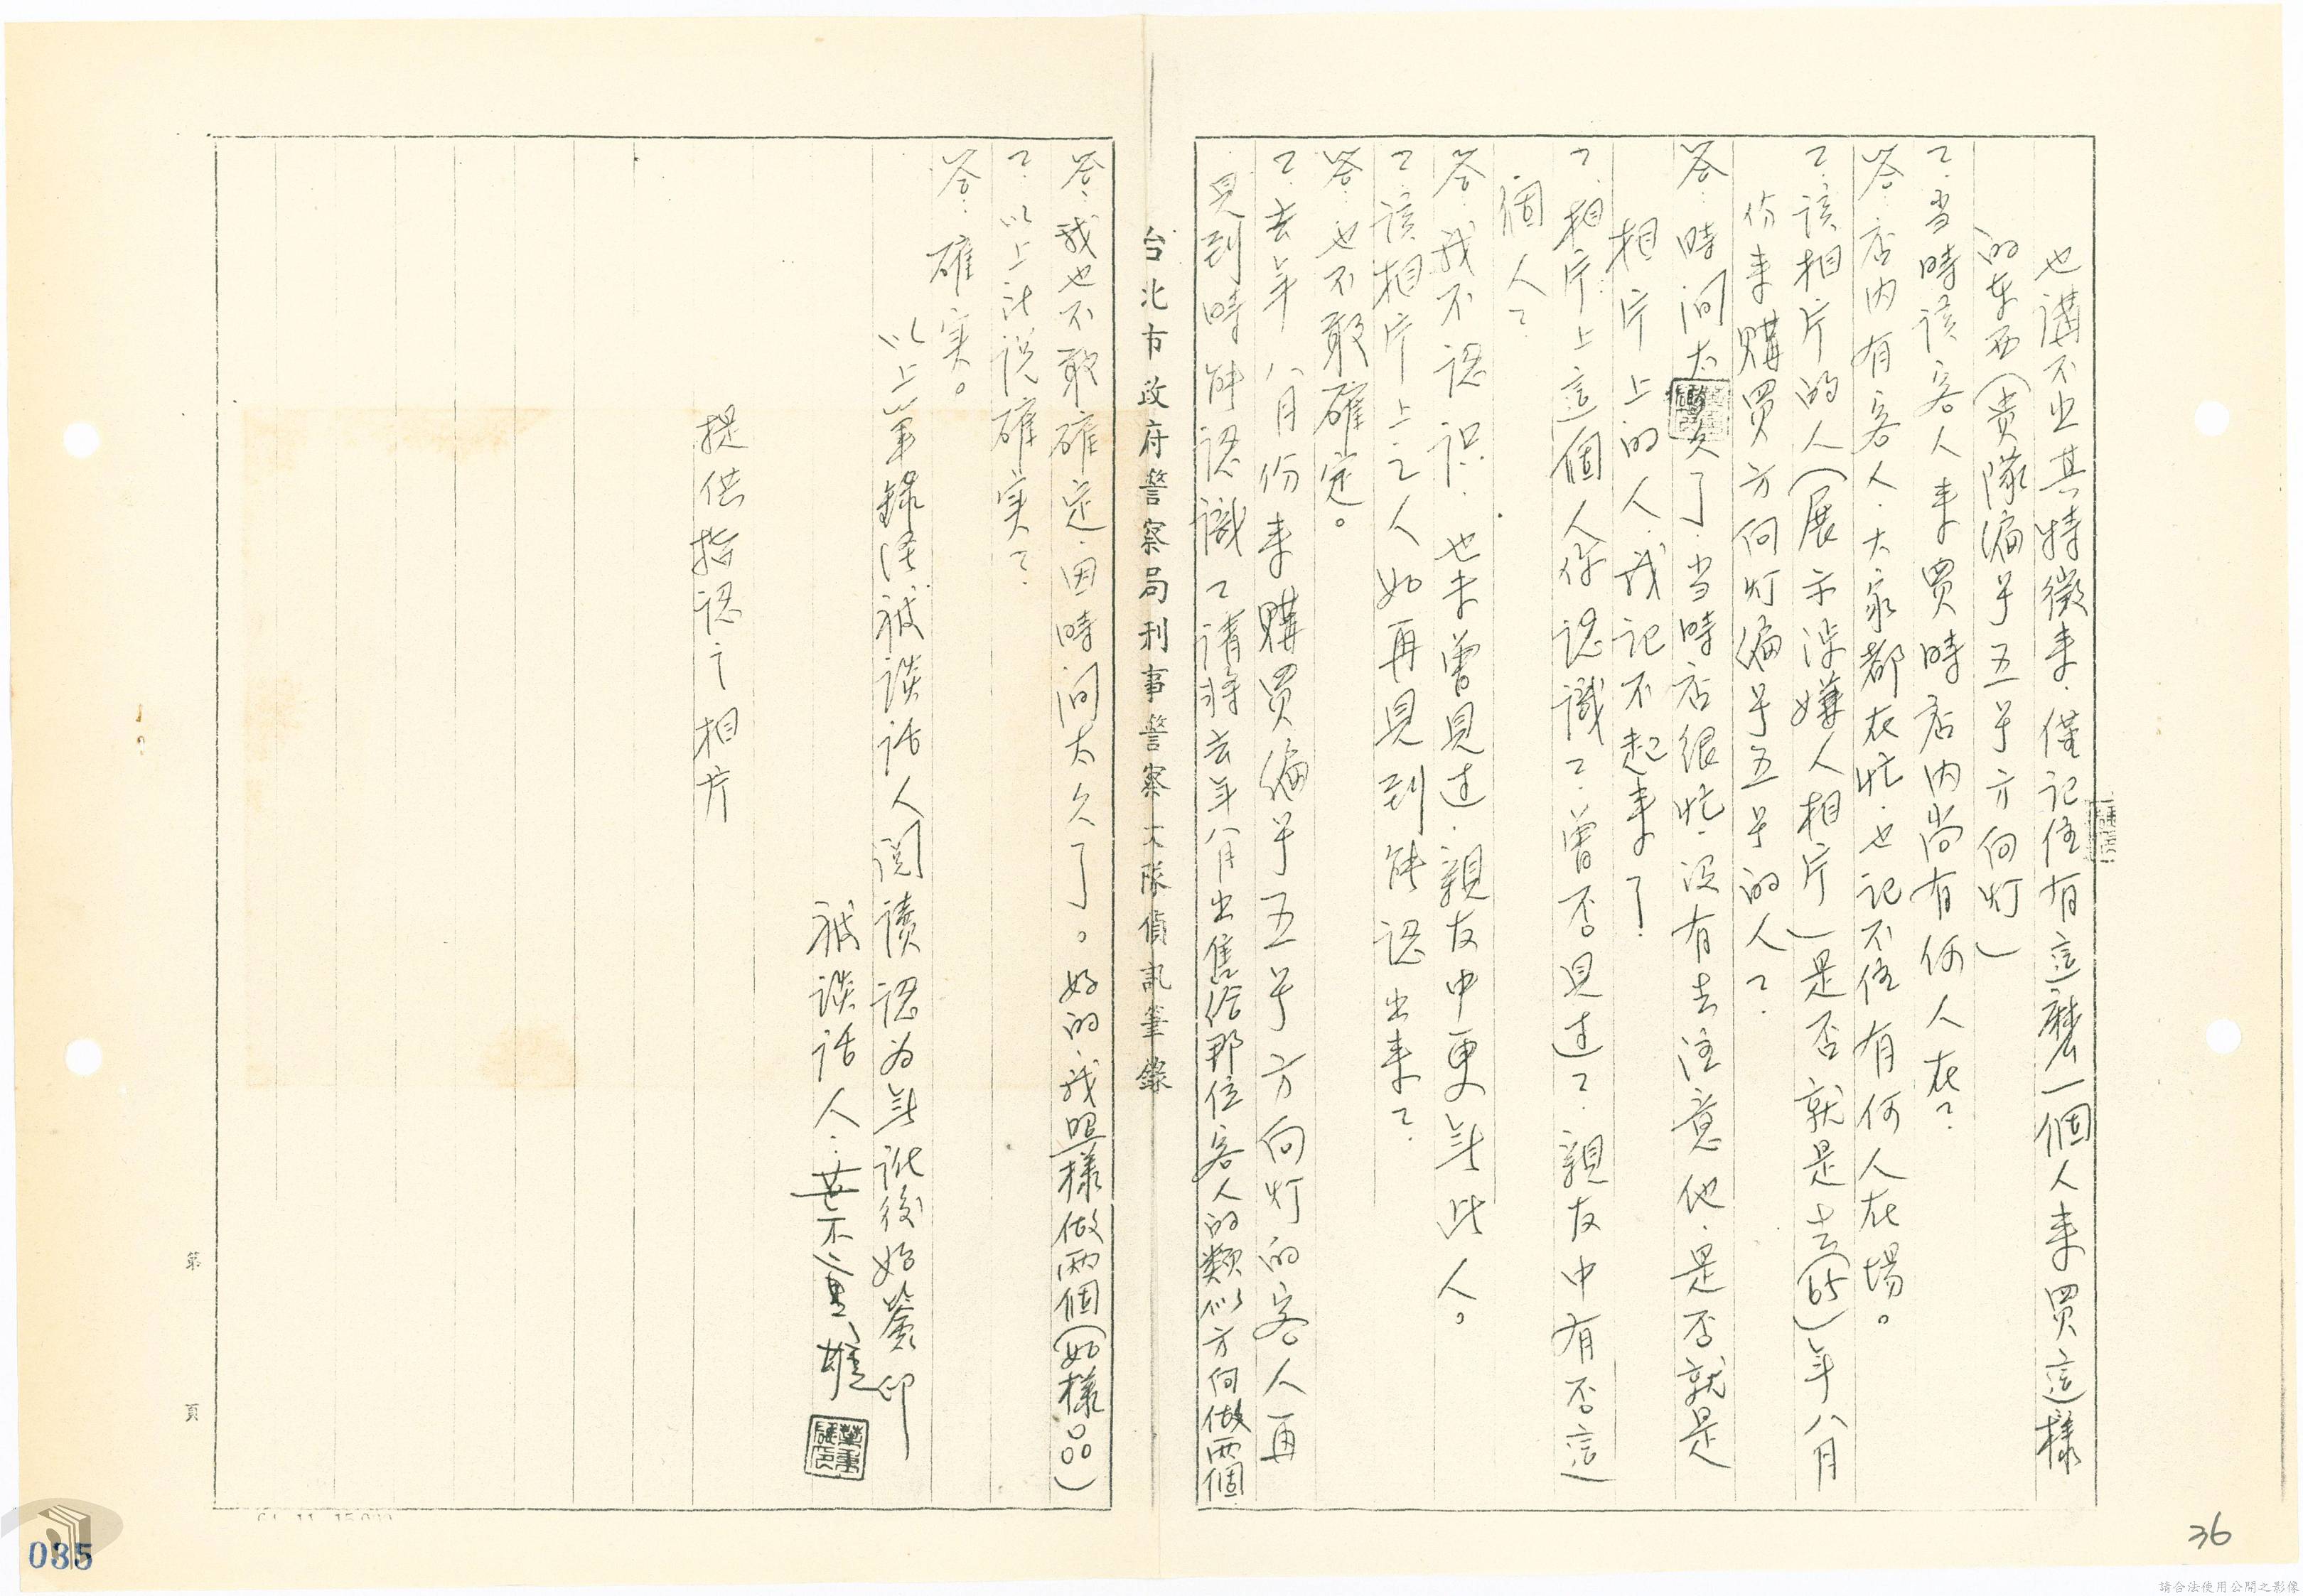 也講不出其特徵來．僅記住有這麼一個人來買這樣
的东西（貴隊编号五号方向灯）
？当時该客人來買時店內尚有何人在？
答．店內有客人．大家都在忙．也記不住有何人在場。
？该相片的人（展示涉嫌人相片）是否就是去（65）年八月
份來購買方向灯编号五号的人？
答．時间太久了．当時店很忙．没有去注意他．是否就是
相片上的人．我记不起來了．
？．相片上這個人你認識？曾否見过？．親友中有否這
個人？
答．我不認识．也未曾見过．親友中更無此人。
？该相片上之人如再見到能認出來？
答．也不敢確定。
？．去年八月份來購買编号五号方向灯的客人再
見到時能認識？请將去年八月出售给那位客人的類似方向做兩個
台北市政府警察局刑事警察大隊偵訊筆錄
答．我也不敢確定．因時间太久了。好的我照樣做兩個（如樣）
？．以上所説確实？
答．確实。
以上筆錄经被談話人閲讀認为無訛後始簽印
被談話人：葉重雄
提供指認之相片
第 頁
035
36
請合法使用公開之影像